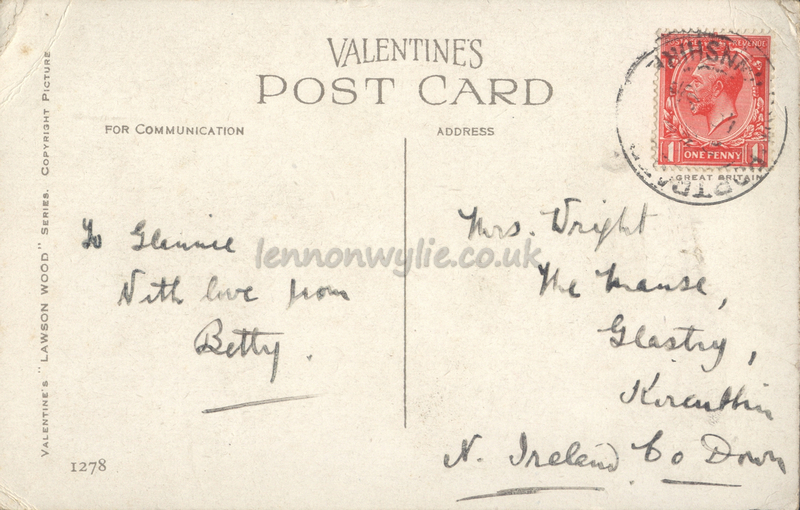 VALENTINE'S
POST CARD
FOR COMMUNICATION
ADDRESS
GREAT BRITAIN
REVENUE
1 ONE PENNY 1
VALENTINE'S "LAWSON WOOD" SERIES. COPYRIGHT PICTURE
To Glennie
With love from
Betty.
1278
Mrs. Wright
The Manse,
Glastry,
N. Ireland Co Down
lennonwylie.co.uk